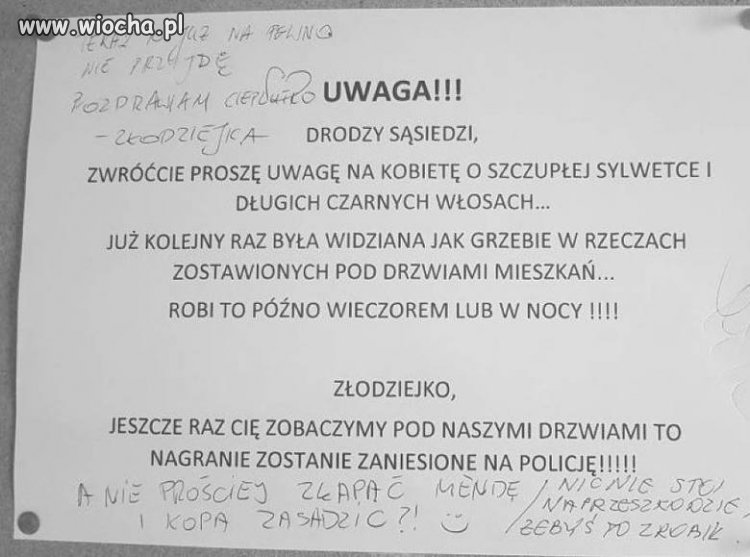 www.wiocha.pl
TERAZ TO JUŻ NA PEWNO
NIE PRZYJDĘ
POZDRAWIAM CIEPLUTKO
- ZŁODZIEJKA
UWAGA!!!
DRODZY SĄSIEDZI,
ZWRÓĆCIE PROSZĘ UWAGĘ NA KOBIETĘ O SZCZUPŁEJ SYLWETCE I
DŁUGICH CZARNYCH WŁOSACH...
JUŻ KOLEJNY RAZ BYŁA WIDZIANA JAK GRZEBIE W RZECZACH
ZOSTAWIONYCH POD DRZWIAMI MIESZKAŃ...
ROBI TO PÓŹNO WIECZOREM LUB W NOCY !!!!
ZŁODZIEJKO,
JESZCZE RAZ CIĘ ZOBACZYMY POD NASZYMI DRZWIAMI TO
NAGRANIE ZOSTANIE ZANIESIONE NA POLICJĘ!!!!!
A NIE PROŚCIEJ ZŁAPAĆ MENDĘ
I KOPA ZASADZIĆ?!
NIC NIE STOI
NA PRZESZKODZIE
ŻEBYŚ TO ZROBIŁ